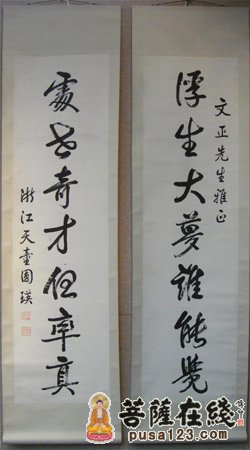 文正先生雅正
浮生大夢誰能覺
處世奇才但率真
浙江天童圓瑛
菩薩在綫
pusa123.com